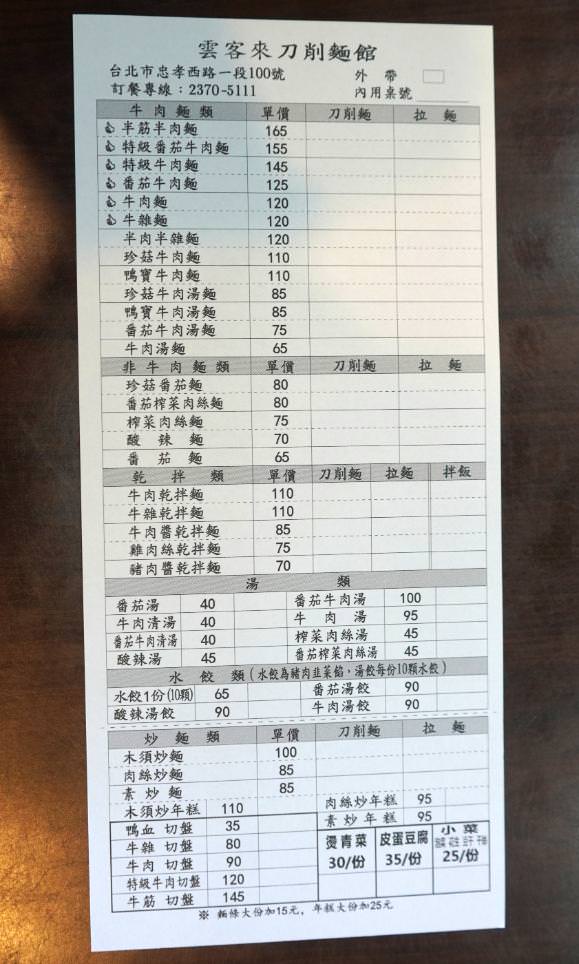 雲客來刀削麵館
台北市忠孝西路一段100號 外 帶
訂餐專線：2370-5111 內用桌號
牛肉麵類 單價 刀削麵 拉 麵
半筋半肉麵 165
特級番茄牛肉麵 155
特級牛肉麵 145
番茄牛肉麵 125
牛肉麵 120
牛雜麵 120
半肉半雜麵 120
珍菇牛肉麵 110
鴨寶牛肉麵 110
珍菇牛肉湯麵 85
鴨寶牛肉湯麵 85
番茄牛肉湯麵 75
牛肉湯麵 65
非牛肉麵類 單價 刀削麵 拉 麵
珍菇番茄麵 80
番茄榨菜肉絲麵 80
榨菜肉絲麵 75
酸 辣 麵 70
番 茄 麵 65
乾 拌 類 單價 刀削麵 拉麵 拌飯
牛肉乾拌麵 110
牛雜乾拌麵 110
牛肉醬乾拌麵 85
雞肉絲乾拌麵 75
豬肉醬乾拌麵 70
湯 類
番茄湯 40 番茄牛肉湯 100
牛肉清湯 40 牛 肉 湯 95
番茄牛肉清湯 40 榨菜肉絲湯 45
酸辣湯 45 番茄榨菜肉絲湯 45
水 餃 類(水餃為豬肉韭菜餡，湯餃每份10顆水餃)
水餃1份(10顆) 65 番茄湯餃 90
酸辣湯餃 90 牛肉湯餃 90
炒 麵 類 單價 刀削麵 拉 麵
木須炒麵 100
肉絲炒麵 85
素 炒 麵 85
木須炒年糕 110 肉絲炒年糕 95
素 炒 年 糕 95
鴨血 切盤 35
牛雜 切盤 80
牛肉 切盤 90
特級牛肉切盤 120
牛筋 切盤 145
燙青菜 皮蛋豆腐 小 菜
30/份 35/份 25/份
※ 麵條大份加15元，年糕大份加25元